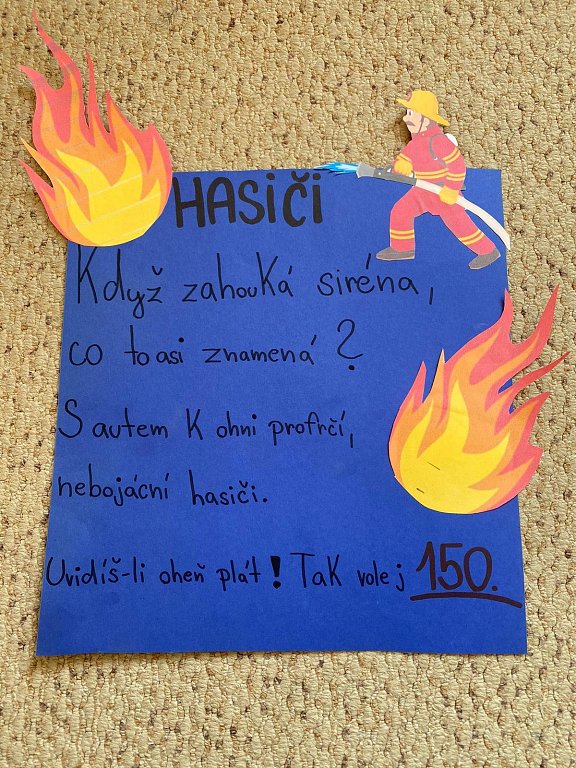 HASiČi
Když zahouká siréna,
co to asi znamená?
S autem k ohni profrčí,
nebojácní hasiči.
Uvidíš-li oheň plát! Tak volej 150.